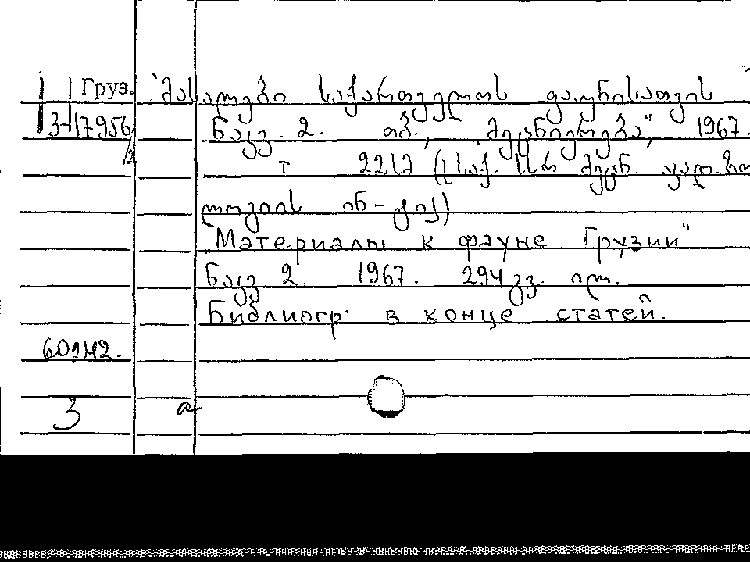 Груз. "მასალები საქართველოს ფაუნისათვის"
3-17956 ნაკვ. 2. თბ., "მეცნიერება", 1967
(საქ. სსრ მეცნ. აკად. ზოო
ლოგიის ინ-ტი)
"Материалы к фауне Грузии"
ნაკვ. 2. 1967. 294 გვ. ილ.
Библиогр. в конце статей.
3 а